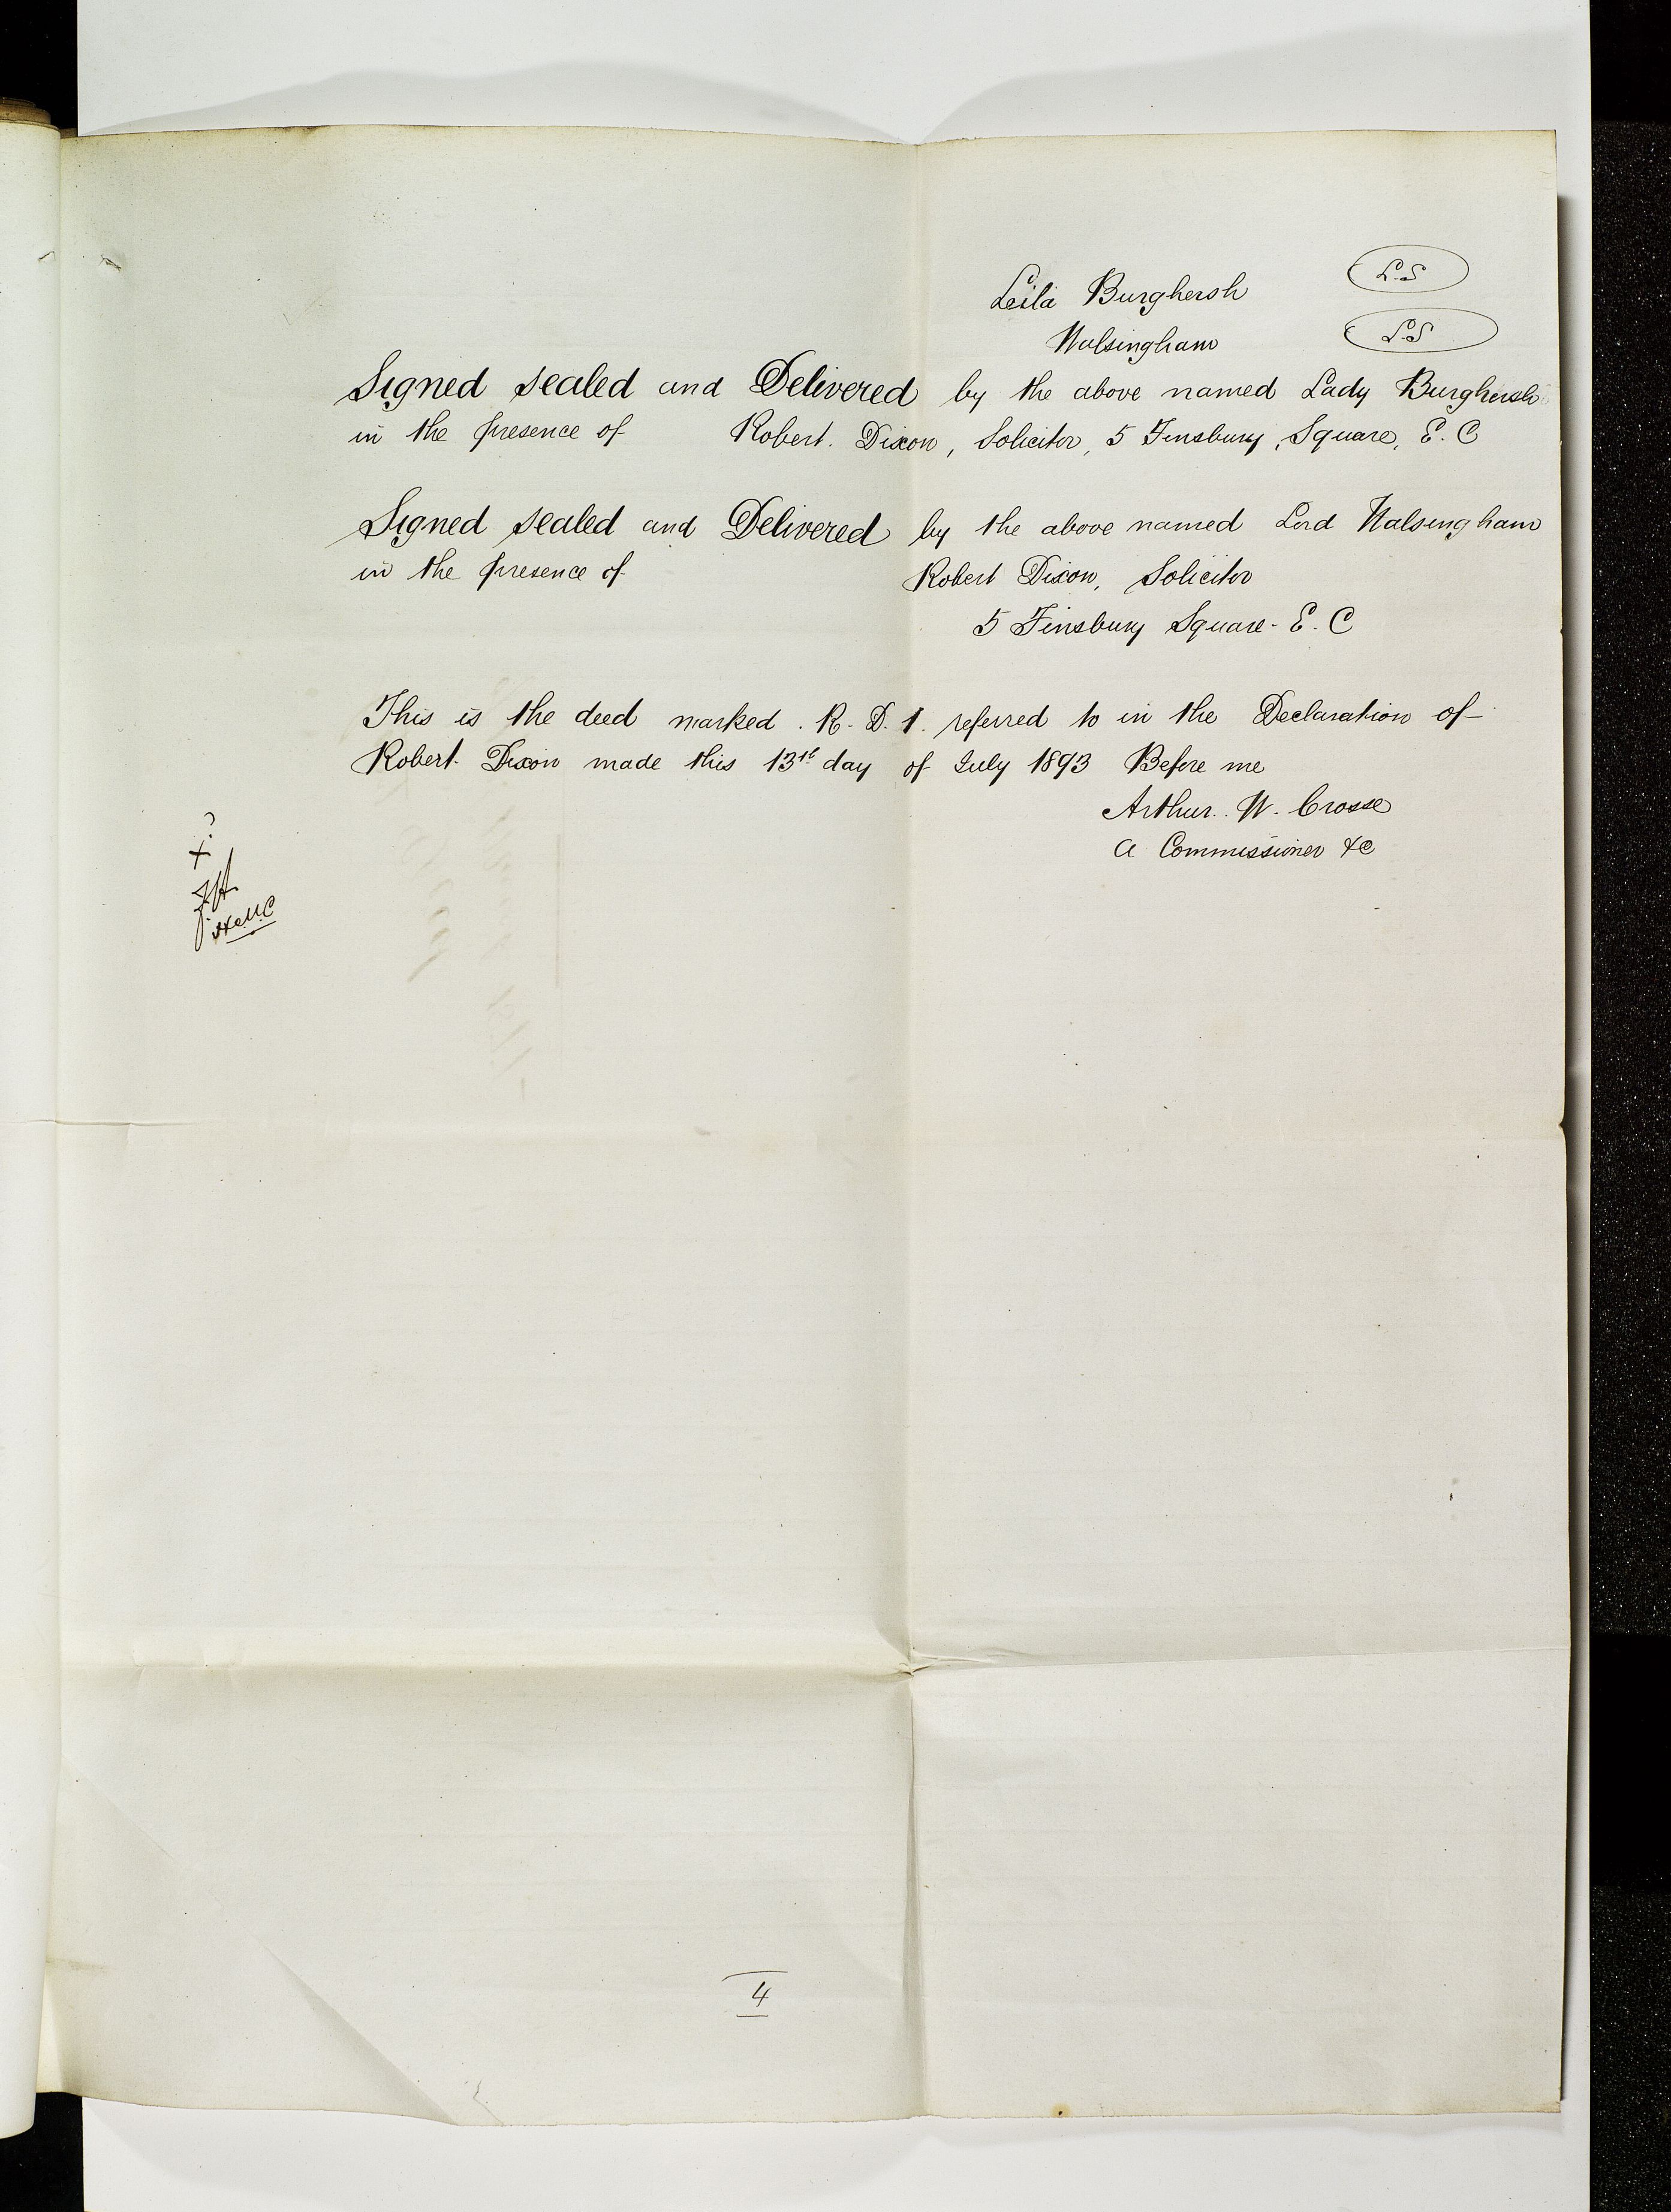 Leila Burghersh L.S
Walsingham L.S
Signed sealed and Delivered by the above named Lady Burghersh
in the presence of Robert. Dixon, Solicitor, 5 Finsbury, Square, E. C
Signed sealed and Delivered by the above named Lord Walsingham
in the presence of Robert Dixon, Solicitor
5 Finsbury Square - E. C
This is the deed marked . R. D. 1. referred to in the Declaration of
Robert. Dixon made this 13th day of July 1893 Before me
Arthur. W. Crosse
a Commissioner &c
4